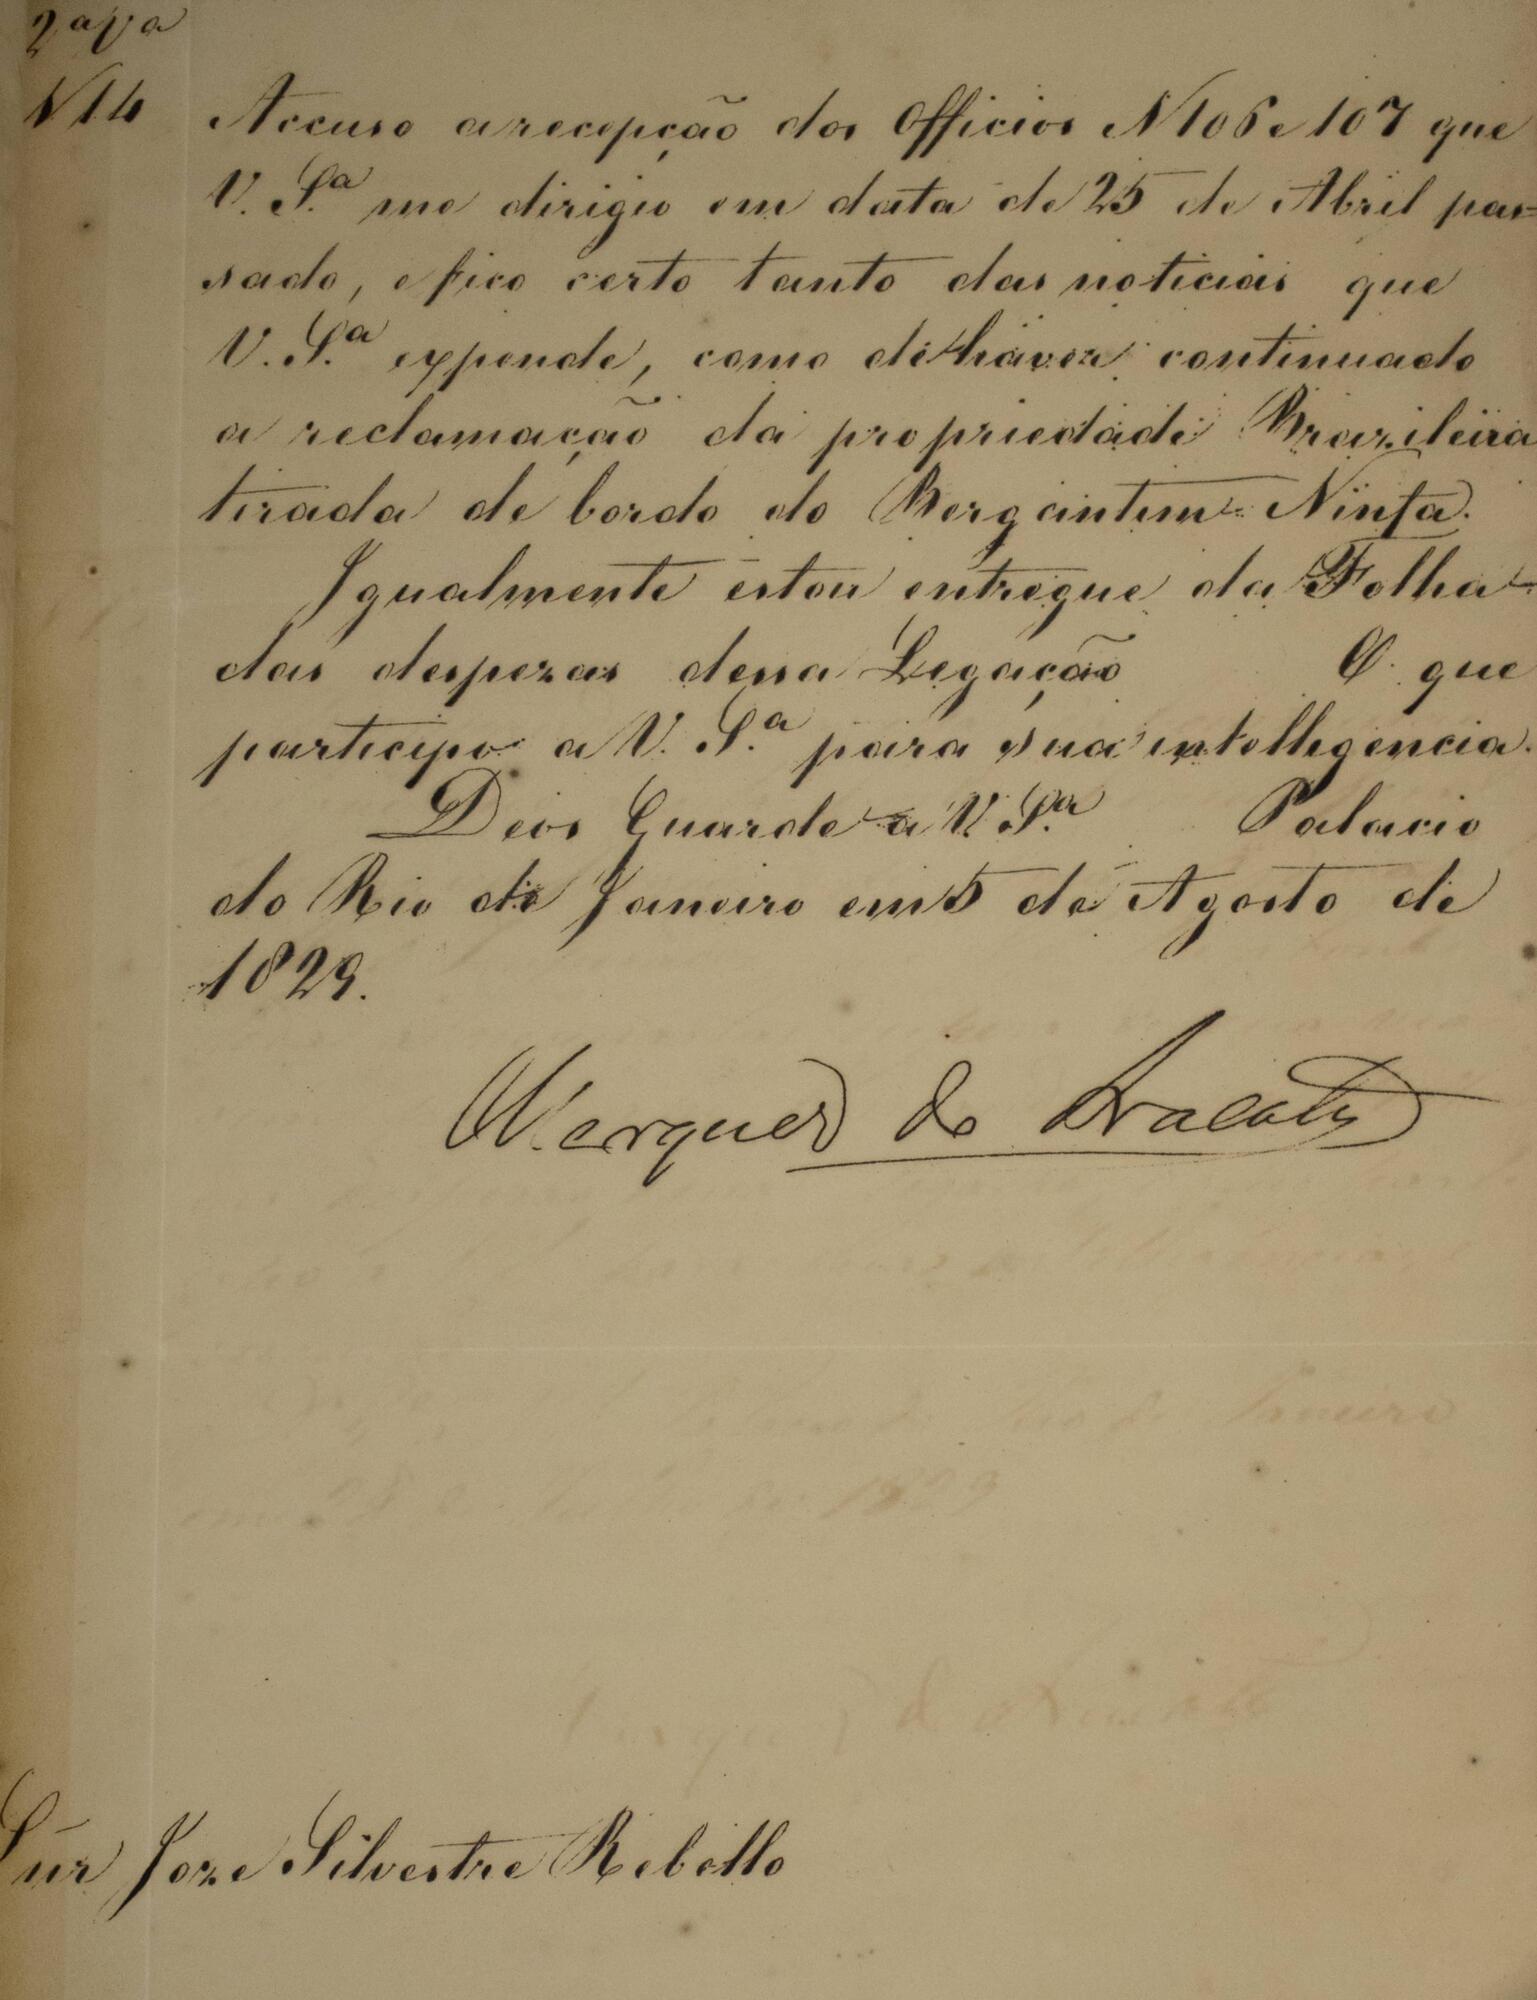 2ª Vª
N 14
Accuso a recepção dos Officios N 106 e 107 que
V. Sª me dirigio em data de 25 de Abril pas=
sado, e fico certo tanto das noticias que
V. Sª expende, como de haver continuado
a reclamação da propriedade Brazileira
tirada de bordo do Bergantim Ninfa.
Igualmente estou entregue da Folha
das despezas dessa Legação O que
participo a V. Sª para sua intelligencia.
Deos Guarde a V. Sª Palacio
do Rio de Janeiro em 5 de Agosto de
1829.
Marquez do Aracaty
Snr Joze Silvestre Rebello